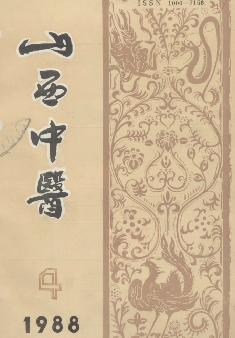 ISSN 1000-7156
山西中醫
4
1988